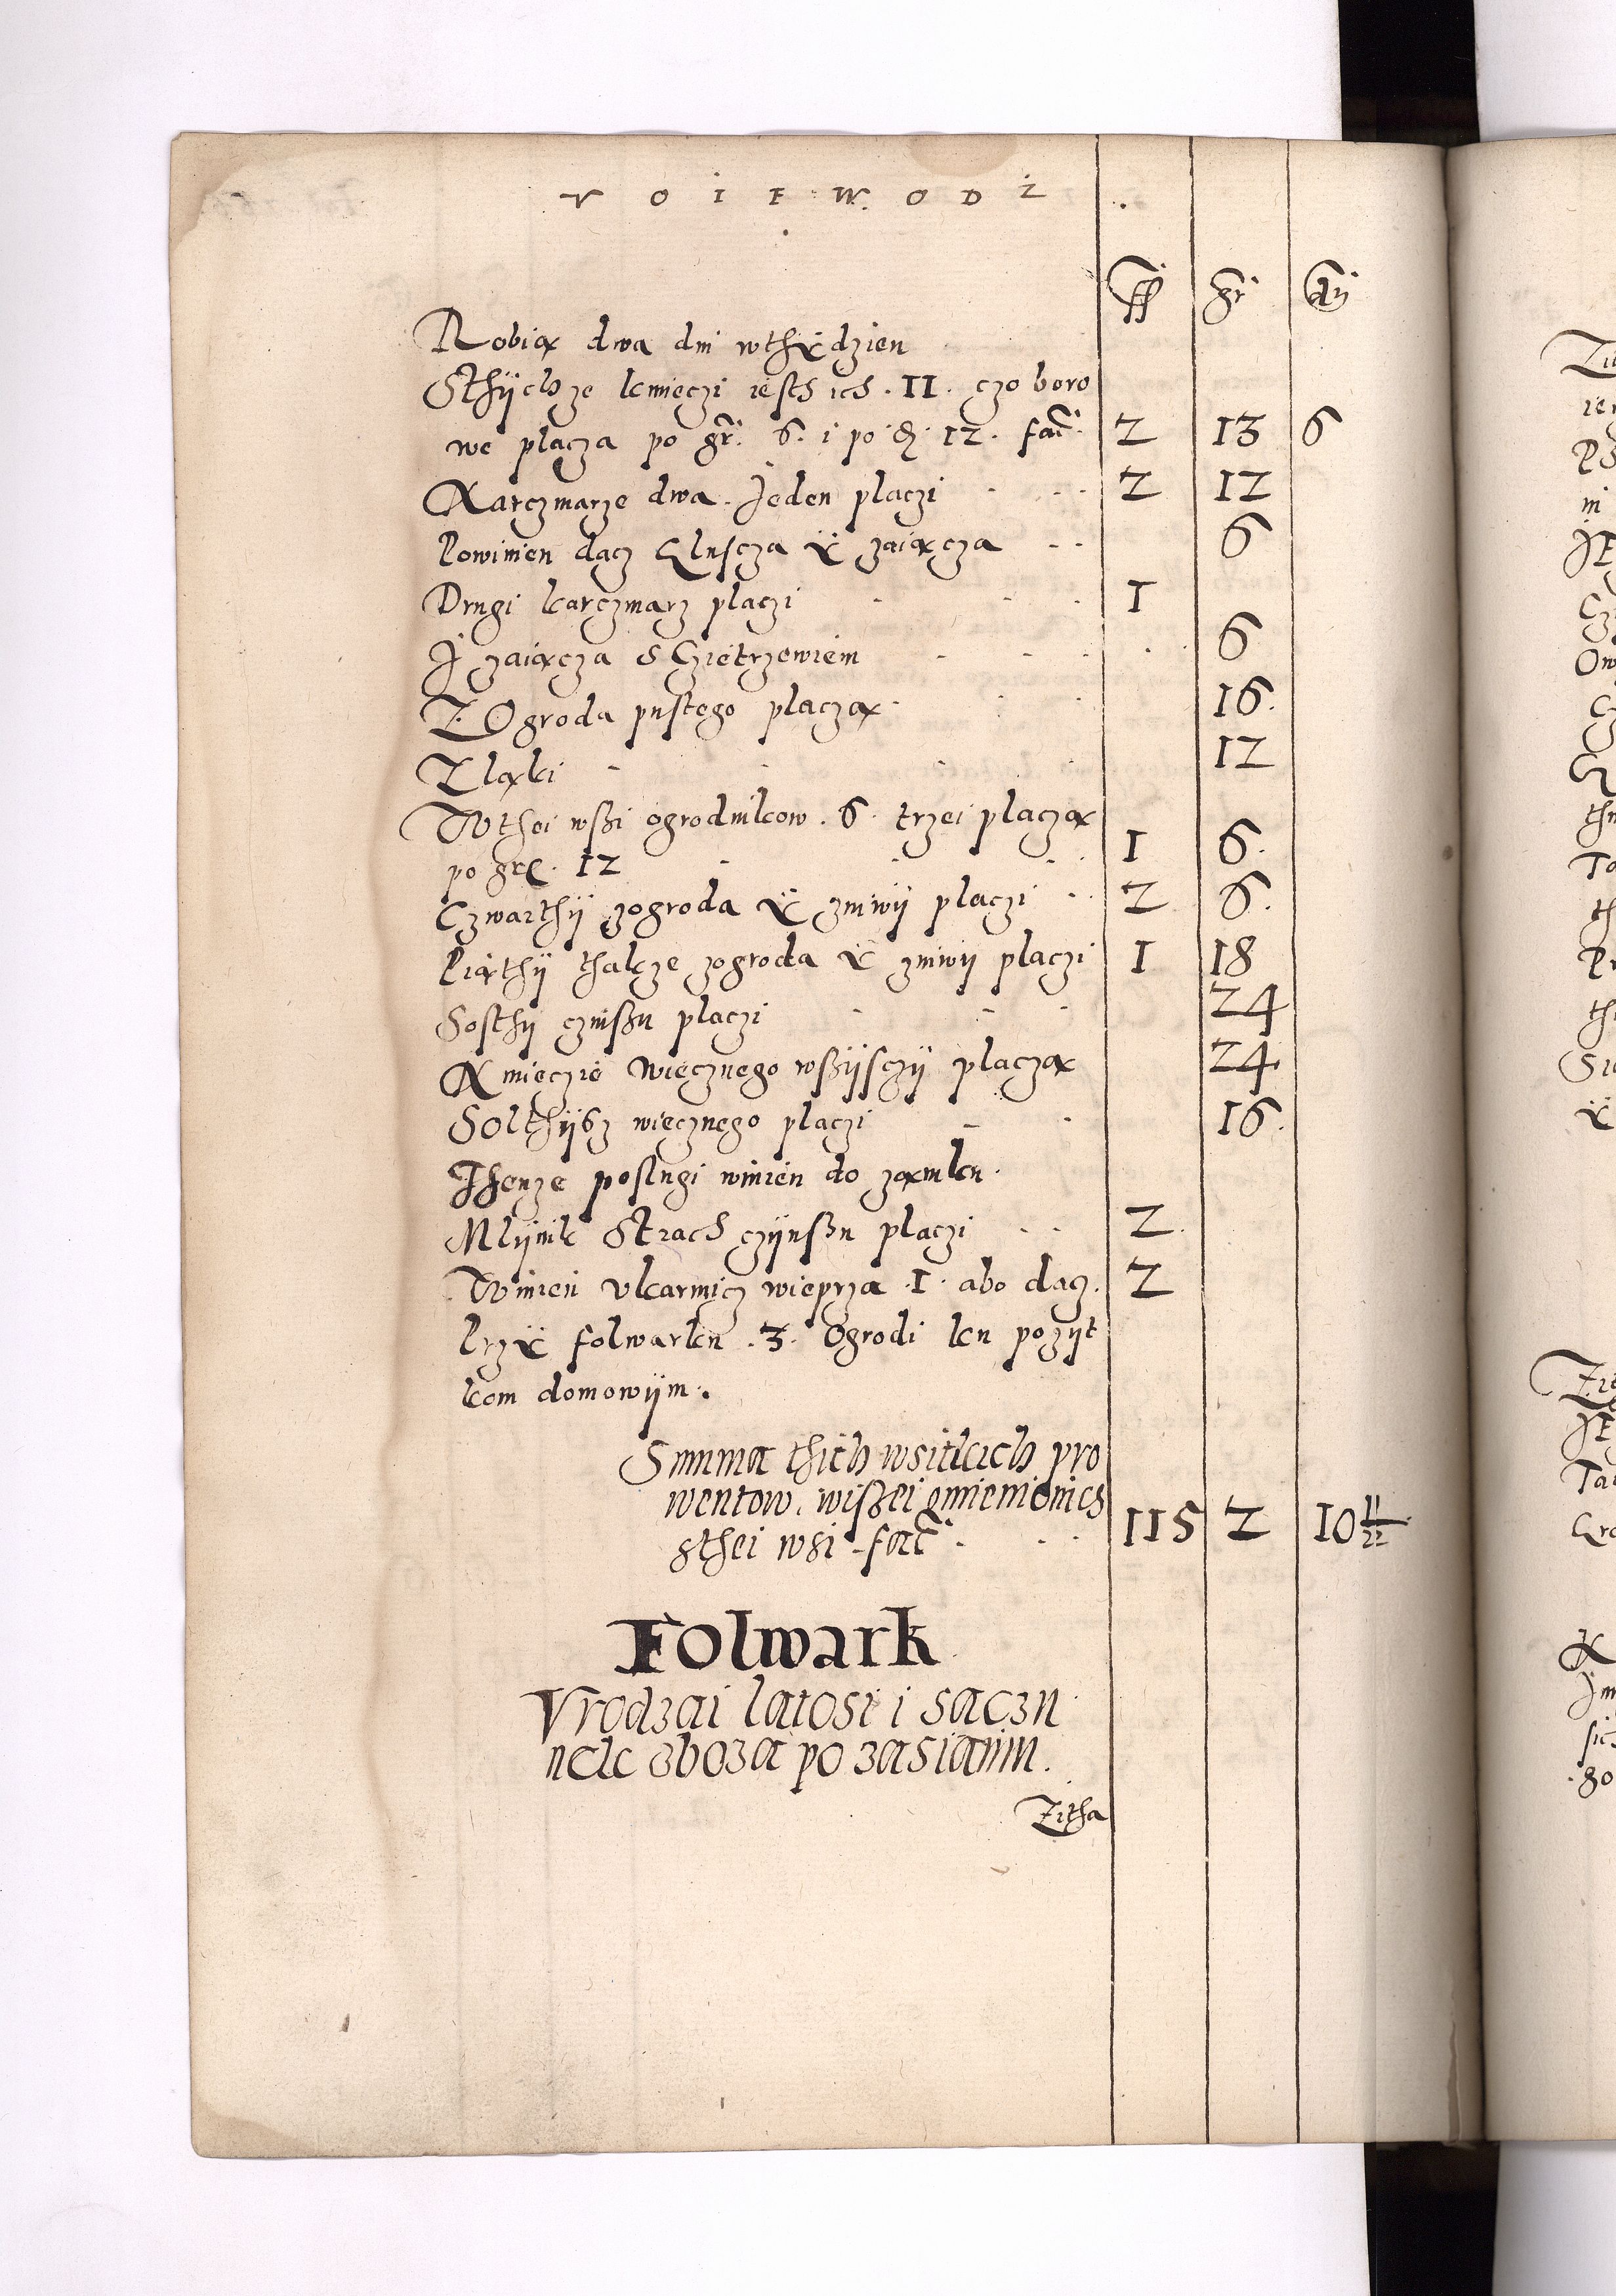 VOIEWODZ
ff gr den
Robią dwa dni wthydzien
Sthÿchze kmieczi iesth ich . II . czo boro
we placza po gr. 6. i po d. 12. fac. 2 13 6
Karczmarze dwa. Jeden placzi 2 12
Powinien dacz Gluscza y zaiącza 6
Drugi karczmarz placzi 1
J zaiącza s Czietrzewiem 6
Z Ogroda pustego placzą 16
Z ląki 12
W thei wßi ogrodnikow . 6 . trzei placzą
po gr. 12 1 6
Czwarthÿ zogroda y zniwÿ placzi 2 6
Piąthÿ thakze zogroda y zniwÿ placzi 1 18
Sosthÿ czinßu placzi 24
Kmieczie wiecznego wßÿsczÿ placzą 24
Solthÿsz wiecznego placzi 16
Thenze poslugi winien do zamku.
Mlÿnik Strach czÿnßu placzi 2
Winien vkarmicz wieprza . I . abo dacz. 2
Przy folwarku . 3 . Ogrodi ku pozÿt
kom domowÿm.
Summa thich wsitkich pro
wentow. wißei zmienionich
sthei wsi . fac. 115 2 10 11/22
Folwark
Vrodzai latosi i saczu
nek zboza po zasianim.
Zitha